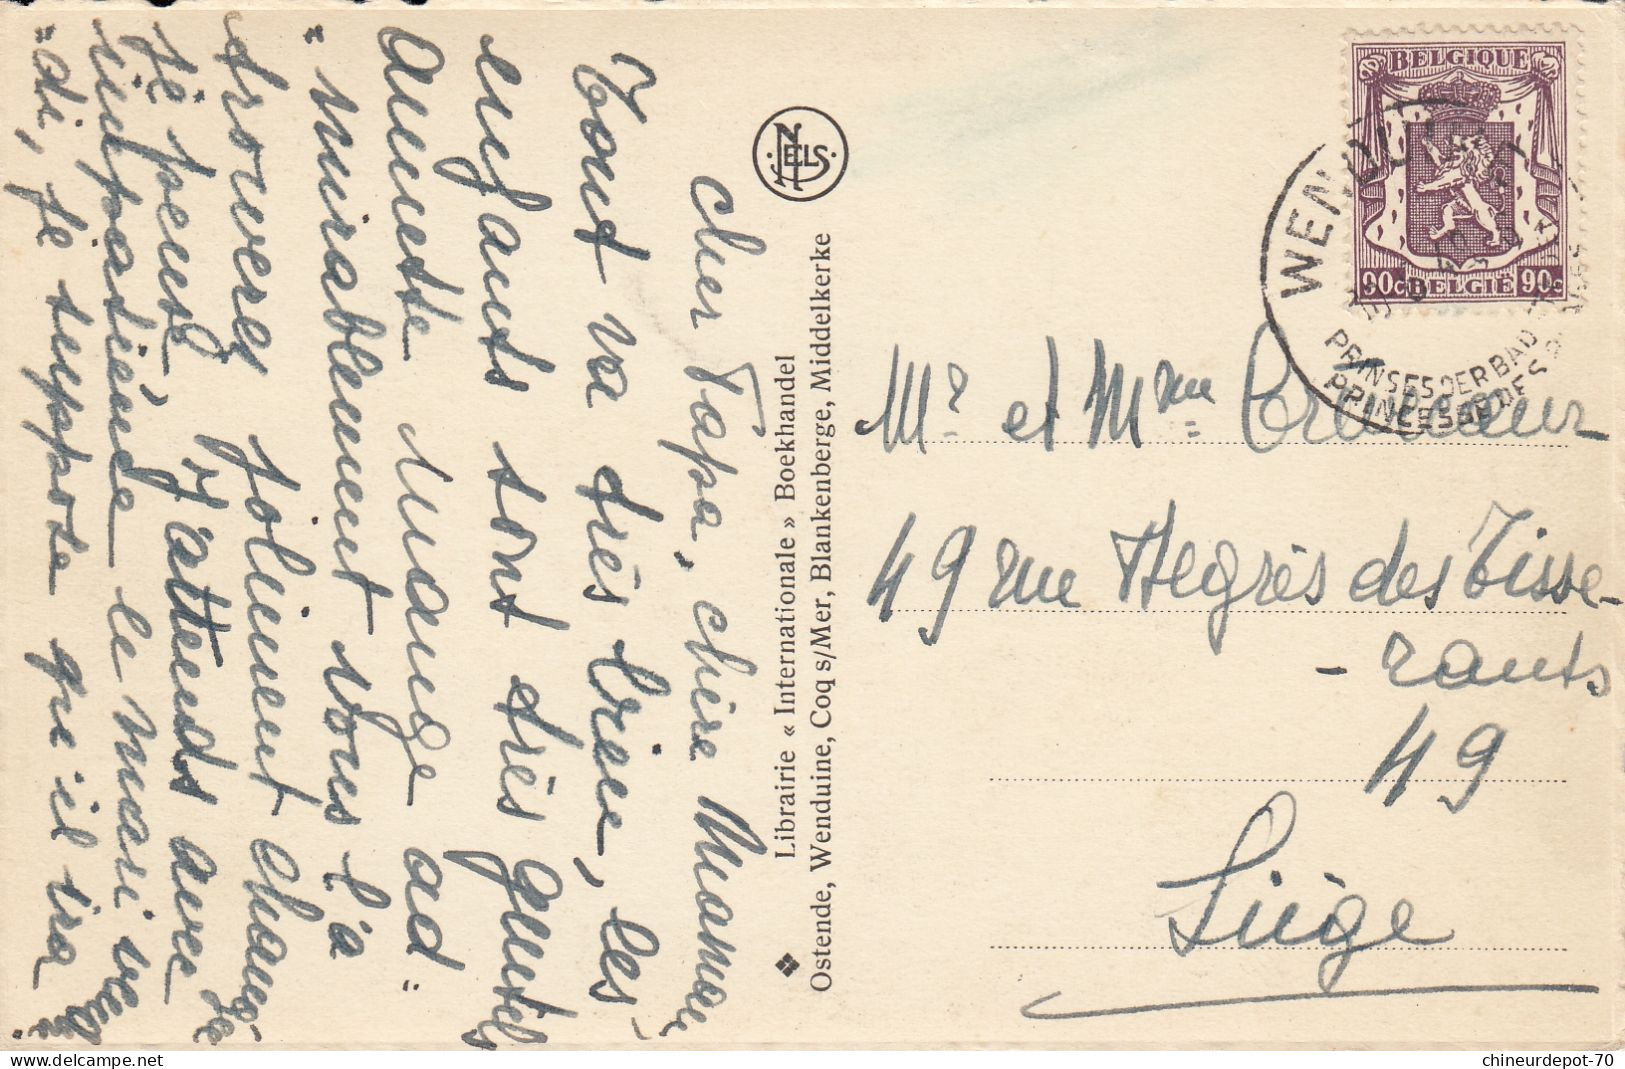 cher Papa, chère Maman
Tout va très bien, les
enfants sont très gentils
Annette mange ad-
mirablement vous l'a
trouverez joliment changée
Je pense j'attends avec
impatience le mari
di, je suppose que il ira
NELS
Librairie « Internationale » Boekhandel
Ostende, Wenduine, Coq s/Mer, Blankenberge, Middelkerke
BELGIQUE
90c BELGIË 90c
PRINSES DER BAD
PRINCESSE DES
Mr et Mme
49 rue Hegrès des Tisse-
- rants
49
Liège
delcampe.net
chineurdepot-70